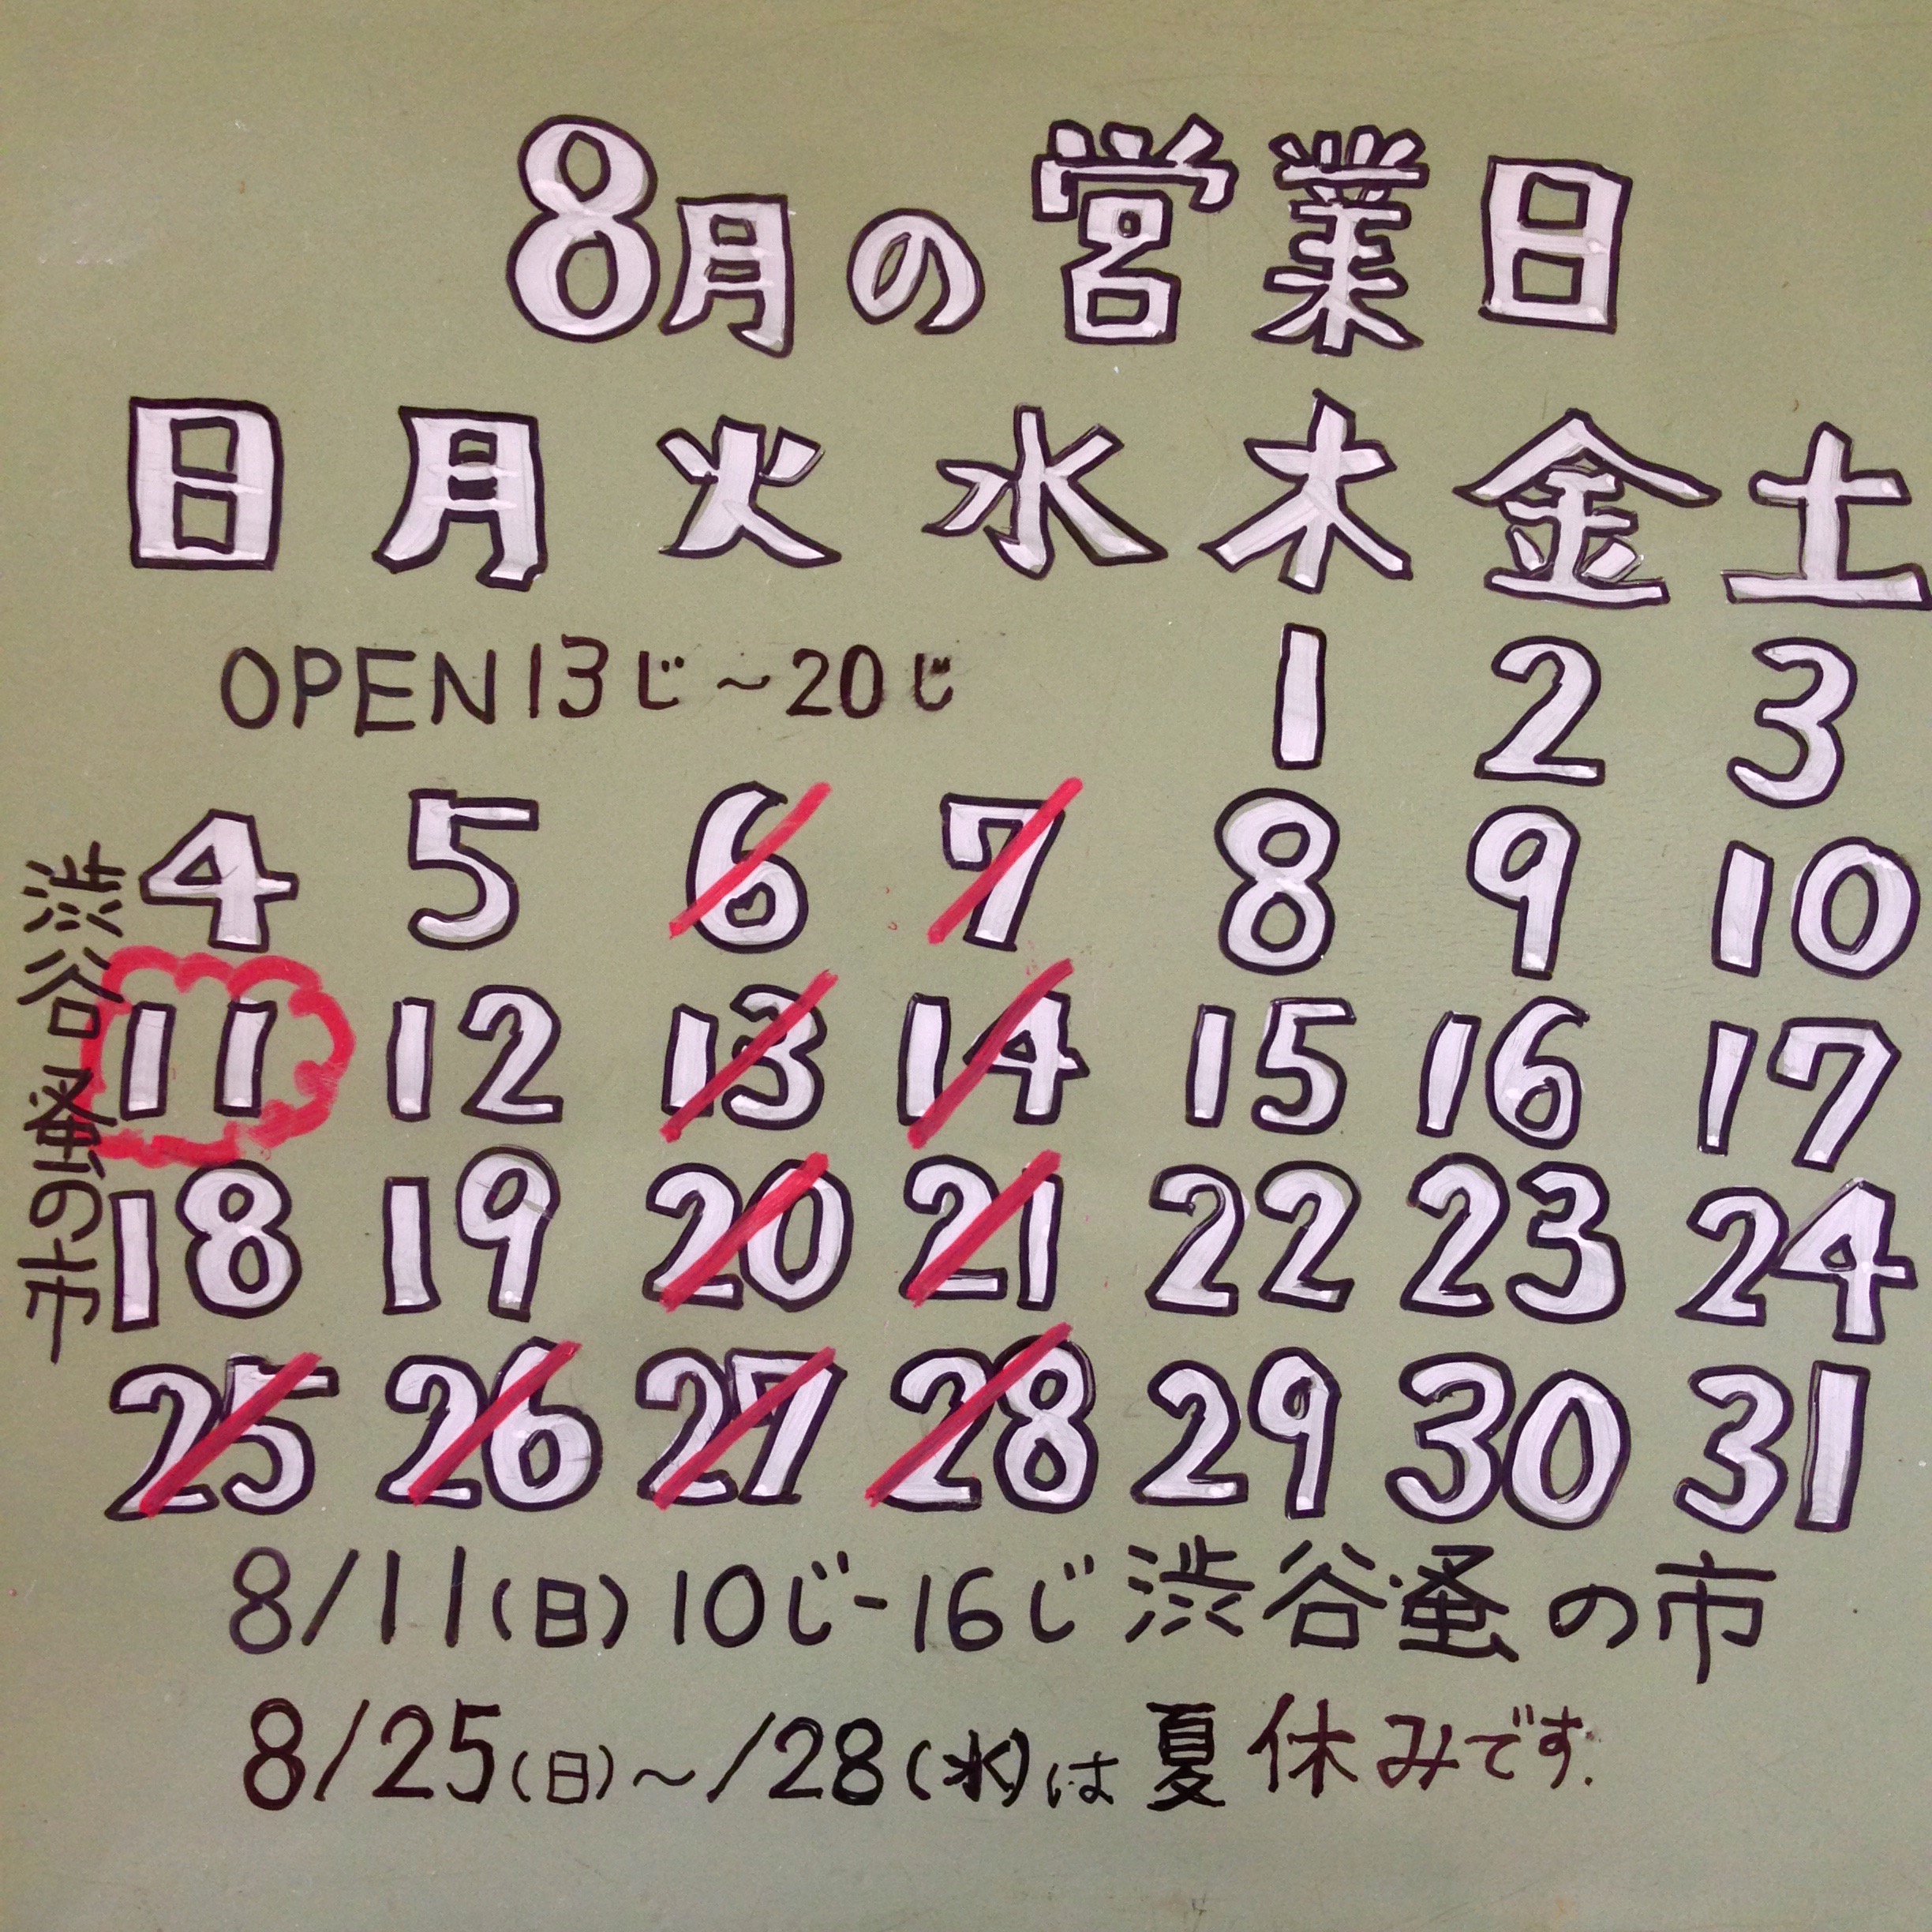 8月の営業日
日 月 火 水 木 金 土
OPEN 13じ〜20じ 1 2 3
4 5 6 7 8 9 10
11 12 13 14 15 16 17
18 19 20 21 22 23 24
25 26 27 28 29 30 31
渋谷蚤の市
8/11(日)10じ-16じ 渋谷蚤の市
8/25(日)〜/28(水)は夏休みです.